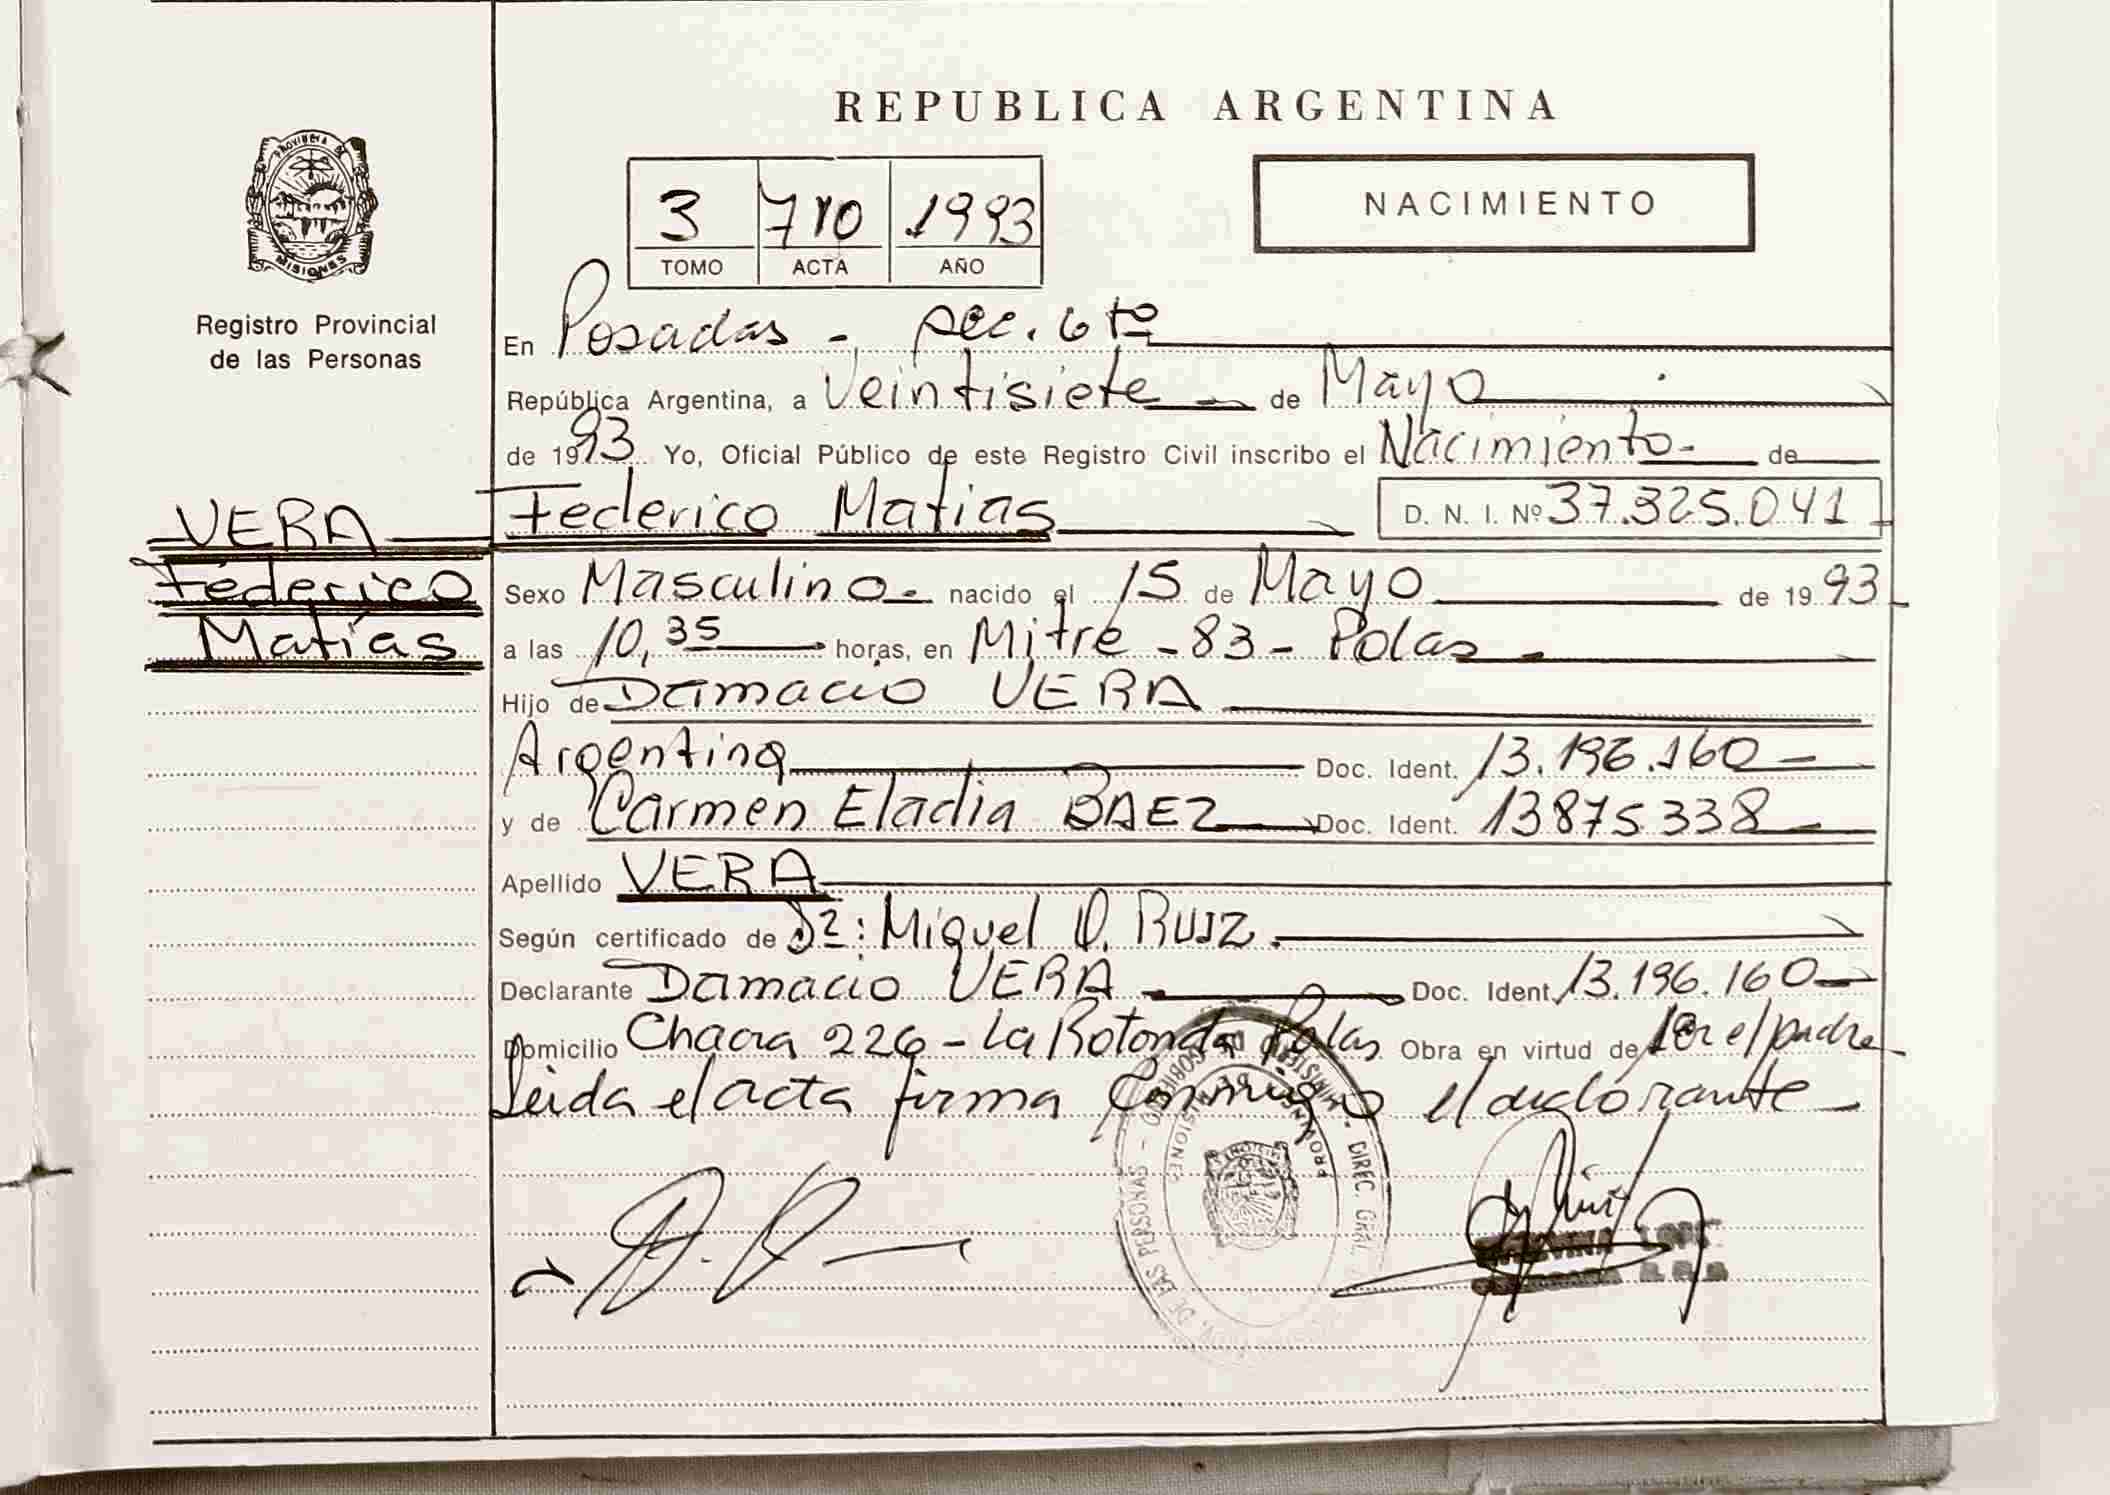 REPUBLICA ARGENTINA
PROVINCIA DE
MISIONES
Registro Provincial
de las Personas
3 710 1993
TOMO ACTA AÑO
NACIMIENTO
En Posadas - sec. 6tº
República Argentina, a Veintisiete - de Mayo
de 1993 Yo, Oficial Público de este Registro Civil inscribo el Nacimiento - de
VERA
Federico
Matías
Federico Matias D. N. I. Nº 37.325.041
Sexo Masculino. nacido el 15 de Mayo de 1993
a las 10,35 horas, en Mitre - 83 - Pdas -
Hijo de Damacio VERA
Argentina Doc. Ident. 13.196.160 -
y de Carmen Eladia BAEZ Doc. Ident. 13875.338 -
Apellido VERA
Según certificado de Dr: Miguel O. RUIZ.
Declarante Damacio VERA - Doc. Ident. 13.196.160 -
Domicilio Chacra 226 - La Rotonda Pdas Obra en virtud de ser el padre
Leida el acta firma conmigo el declarante -